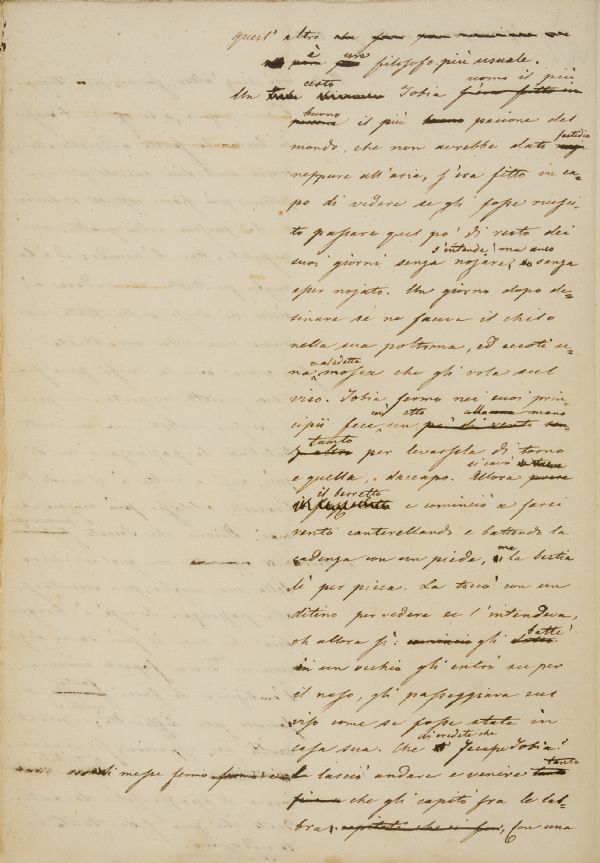 quest' altro
è un filosofo più usuale.
Un certo Tobia uomo il più
buono il più pacione del
mondo, che non avrebbe dato fastidio
neppure all'aria, s'era fitto in ca=
po di vedere se gli fosse riusci=
to passare quel po' di resto dei
s'intende, ma anco
suoi giorni senza nojare, senza
esser nojato. Un giorno dopo de=
sinare se ne faceva il chilo
nella sua poltrona, ed eccoti u=
maladetta
na mosca che gli vola sul
viso. Tobia fermo nei suoi prin=
cipii fece un atto colla mano
tanto per levarsela di torno
e quella, daccapo. Allora si cavò
il berretto e cominciò a farsi
vento canterellando e battendo la
cadenza con un piede, ma la bestia
lì per picca. La toccò con un
ditino per vedere se l'intendeva,
oh allora sì: gli battè
in un occhio gli entrò su per
il naso, gli passeggiava sul
viso come se fosse stata in
casa sua. Che credete che facesse Tobia?
si messe fermo
la lasciò andare e venire tanto
che gli capitò fra le lab=
bra; con una